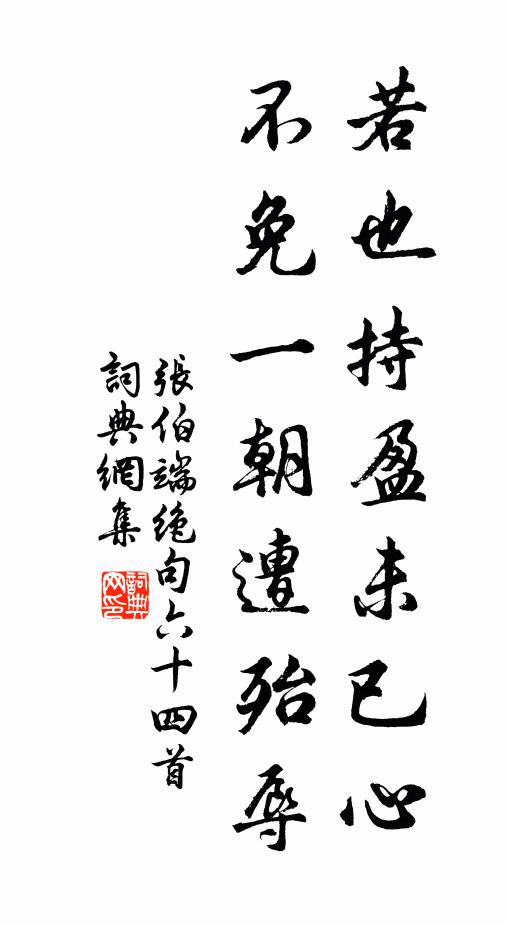 若也持盈未已心
不免一朝遭殆辱
張伯端絶句六十四首
詞典網集
詞典网印